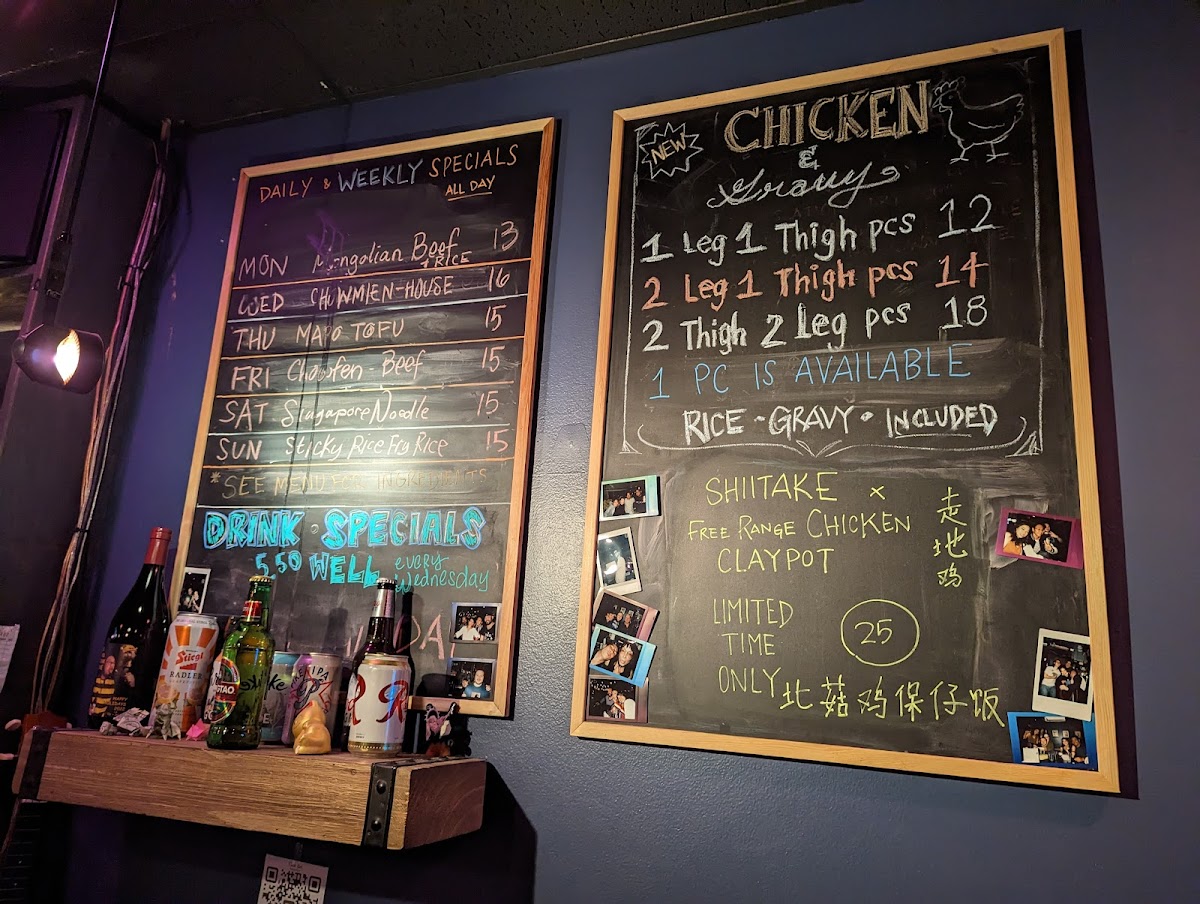 DAILY & WEEKLY SPECIALS
ALL DAY
MON Mongolian Beef 13
+ RICE
WED CHOWMIEN-HOUSE 16
THU MAPO TOFU 15
FRI Beef 15
SAT Singapore Noodle 15
SUN Sticky Rice Fry Rice 15
*SEE MENU FOR INGREDIENTS
DRINK · SPECIALS
5.50 WELL every
Wednesday
NEW
CHICKEN
&
Gravy
1 Leg 1 Thigh pcs 12
2 Leg 1 Thigh pcs 14
2 Thigh 2 Leg pcs 18
1 PC IS AVAILABLE
RICE - GRAVY • INCLUDED
SHIITAKE x
FREE RANGE CHICKEN
CLAYPOT
走地鸡
LIMITED
TIME
ONLY
25
北菇鸡保仔饭
Stiegl
RADLER
TAO
IPA
R R